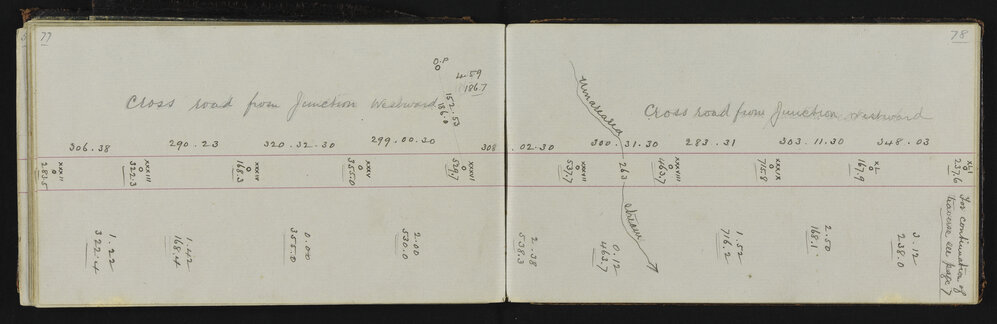 77
O.P
4.59
186.7
152.53
186.0
Cross road from Junction Westward
306.38
290.23
320.32.30
299.00.30
308
XXXII
283.5
XXXIII
322.3
XXXIV
168.3
XXXV
355.0
XXXVI
529.7
1.22
322.4
1.42
168.4
0.00
355.0
2.00
530.0
78
Cross road from Junction westward
.02.30
300.31.30
283.31
303.11.30
348.03
XXXVII
537.7
263
stream
XXXVIII
463.7
XXXIX
715.8
XL
167.9
XLI
237.6
2.38
538.3
0.12
463.7
1.52
716.2
2.50
168.1
3.12
238.0
For continuation of
traverse see page 7